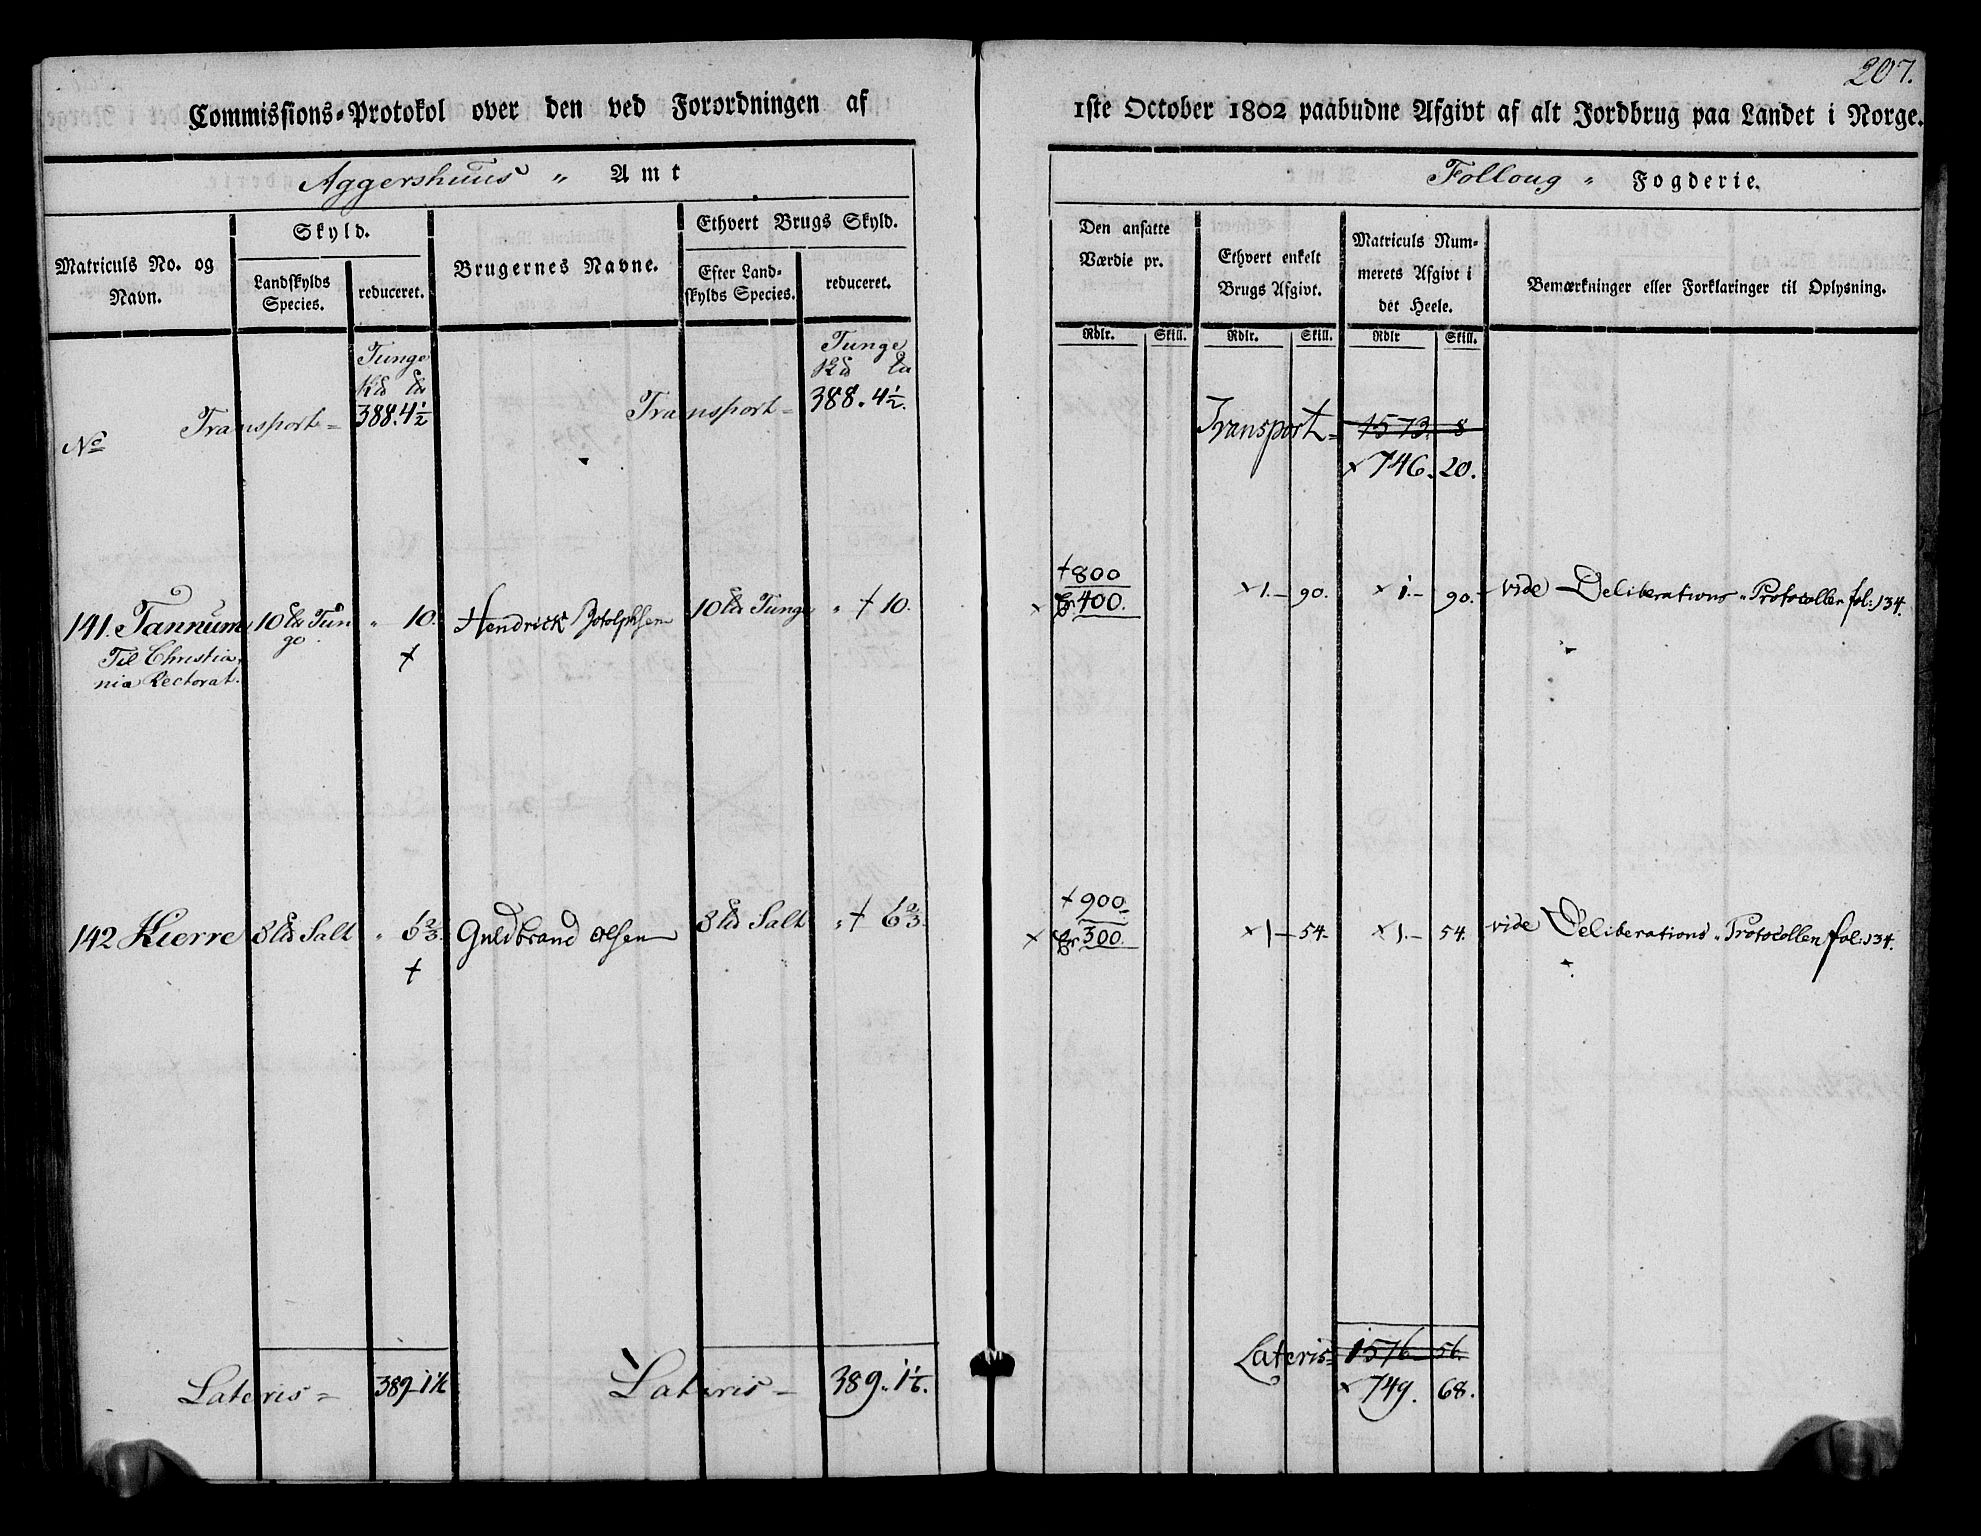 207.
Commissions-Protokol over den ved Forordningen af 1ste October 1802 paabudne Afgivt af alt Jordbrug paa Landet i Norge.
Aggershuus " Amt
Folloug " Fogderie.
Matriculs No. og Navn.
Skyld.
Landskylds Species.
reduceret.
Brugernes Navne.
Ethvert Brugs Skyld.
Efter Landskylds Species.
reduceret.
Den ansatte Værdie pr.
Rdlr. Skill.
Ethvert enkelt Brugs Afgivt.
Rdlr. Skill.
Matriculs Nummerets Afgivt i det Heele.
Rdlr Skill.
Bemærkninger eller Forklaringer til Oplysning.
Tunge
Tunge
No Transport = 388. 4½ Transport = 388. 4½. Transport = 1573. 8
x 746. 20.
141. Tannum 10 Tun " 10. Hendrick 10 Tunge " + 10. + 800 x 1. - 90. x 1. - 90. - vide Deliberations-Protocollen fol: 134.
go. x 400.
Til Christia, +
nia Rectorat.
142 Kierre 3 Salt " 6⅔. Guldbrand Olsen 3 Salt " + 6⅔. + 900. x 1 - 54. x 1. - 54. - vide Deliberations-Protocollen fol: 134.
+ x 300.
Lateris = 389 - 1⅙ Lateris = 389. 1⅙. Lateris = 1576 56.
x 749. 68.